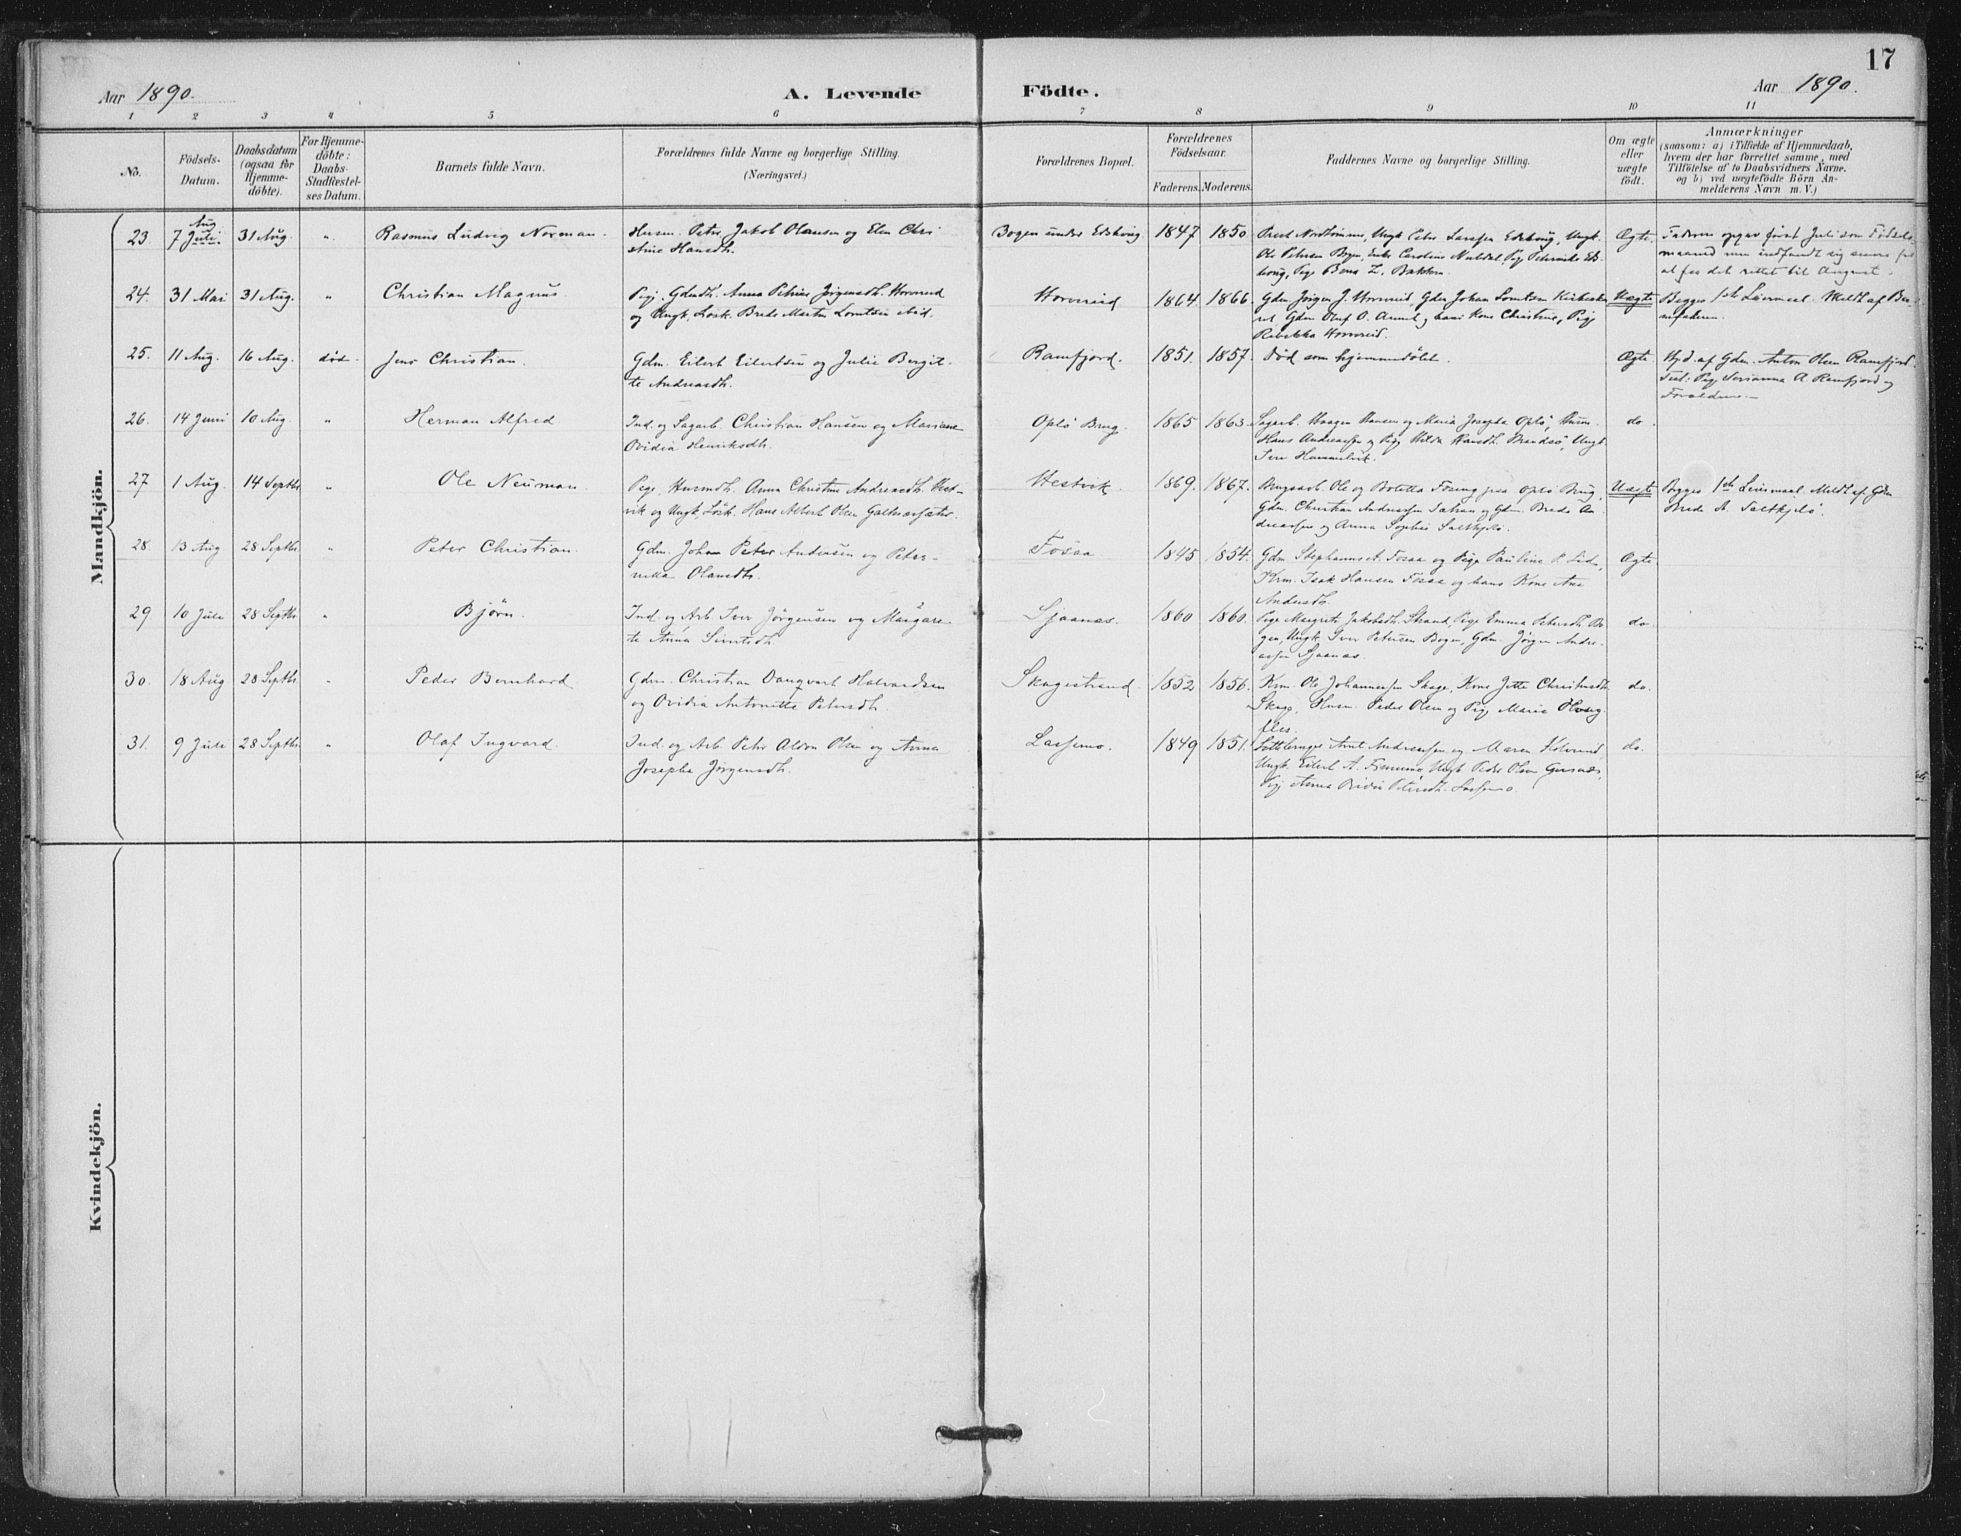 17
Aar 1890. A. Levende Födte. Aar 1890.
1 2 3 4 5 6 7 8 9 10 11
No.
Födsels-Datum.
Daabsdatum (ogsaa för Hjemmedöbte).
For Hjemmedöbte: Daabs-Stadfæstelses Datum.
Barnets fulde Navn.
Forældrenes fulde Navne og borgerlige Stilling. (Næringsvei.)
Forældrenes Bopæl.
Forældrenes Födselsaar.
Faderens. Moderens.
Faddernes Navne og borgerlige Stilling.
Om ægte eller uægte födt.
Anmærkninger
(saasom: a) i Tilfælde af Hjemmedaab,
hvem der har forrettet samme, med
Tilföielse af to Daabsvidners Navne.
og b) ved uægtefödte Börn An-
melderens Navn m. V.)
Mandkjön.
23. 7 Juli Aug 31 Aug. " Rasmus Ludvig Norman. Husm. Peter Jakob Olausen og Elen Chri
stine Hansdh. Bogen under Edshvig. 1847 1850. Ægte.
Faderen opgav først Juli som Fødsels-
maaned men indfandt sig senere for
at faa det rettet til August.
24. 31 Mai 31 Aug. " Christian Magnus Pige, Gdmdh. Anna Petrine Jörgensdh. Horvereid
og Ungk. Løsk. Brede Martin Lorntsen ibid. Horvereid 1864. 1866. Gdm Jörgen J. Horvereid, Gdm Johan Lorntsen
Gdm Oluf O. og hans Kone Christine, Pige
Rebekka Horvereid. Uægte Begges 1ste Leiermaal. Meldt af Bar-
nefaderen.
25. 11 Aug. 16 Aug. död. Jens Christian. Gdm. Eilert Eilertsen og Julie Bergit-
te Andreasdh. Ramfjord. 1851. 1857. Död som hjemmedöbt. Ægte Hjd. af Gdm. Anton Olsen Ramfjord.
Test: Pige Serianna A Ramfjord og
Forældrene.
26. 14 Juni 10 Aug. " Herman Alfred Ind. og Sagarb. Christian Hansen og Mariane
Ovidia Henriksdh. Oplö Brug. 1865 1863. Sagarb. Haagen Hansen og Maria Josepha Oplö, Husm.
Hans Andreassen og Pige Hilda Hansdh. Ungk. do.
27 1 Aug. 14 Septbr " Ole Neuman. Pige, Husmdh. Anna Christine Andreasdh. Hest-
vik og Ungk, Løsk. Hans Albert Olsen Hestvik 1869. 1867. Brugsarb. Ole og Botella Fosing fra Oplö Brug,
Gdm. Christian Andreassen og Gdm. Brede An
dreassen og Anna Sophie Saltkjelö. Uægt. Begges 1ste Leiermaal. Meldt af Gdm
Brede A. Saltkjelö.
28. 13 Aug 28 Septbr " Peter Christian. Gdm. Johan Peter Andersen og Peter-
nella Olausdh. Fosaa 1845 1854. Gdm Stephanus A. Fosaa og Pige Pauline P. Lide,
Krm. Isak Hansen Fosaa og hans Kone Ane
Andersdh. Ægte.
29. 10 Juli 28 Septbr " Björn. Ind. og Arb. Iver Jörgensen og Margare-
te Anna Simesdh. Sjaanæs. 1860 1860. Pige Margrete Jakobsdh. Strand, Pige Emma Petersdh. Bo
gen, Ungk. Iver Petersen Bogen, Gdm. Jörgen Andre-
assen Sjaanæs. do.
30. 18 Aug 28 Septbr " Peder Bernhard Gdm. Christian Dangvart Halvardsen
og Ovidia Antonette Petersdh. Skagestrand. 1852 1856. Krm. Ole Johannessen Skage, Kone Jette Christensdh
Skage, Husm. Peder Olsen og Pige Maria do.
31. 9 Juli 28 Septbr. " Olaf Ingvard. Ind. og Arb. Peter Aldon Olsen og Anna
Josepha Jörgensdh. Lassemo. 1849 1851. Arnt Andreassen og Maren
Ungk. Eilert A. Ungk Peder Olsen
Pige Anna Petersdh. Lassemo. do.
Kvindekjön.